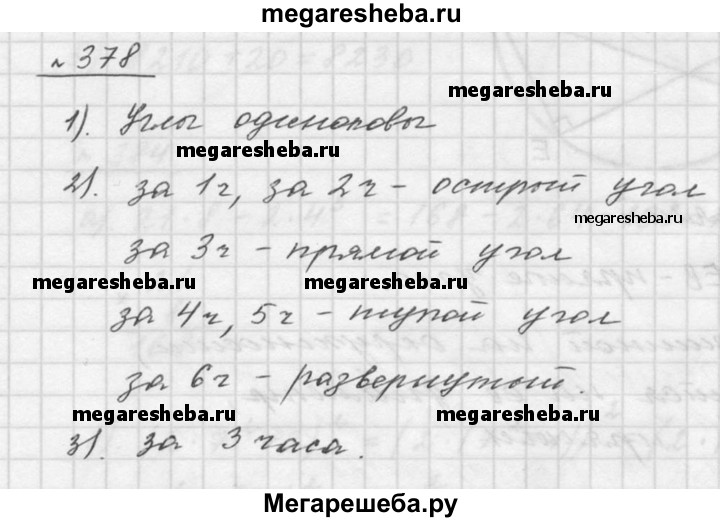 megaresheba.ru
№ 378
megaresheba.ru
1). Углы одинаковы
megaresheba.ru
2). за 1ч, за 2ч - острый угол
megaresheba.ru
за 3ч - прямой угол
megaresheba.ru megaresheba.ru
за 4ч, 5ч - тупой угол
за 6ч - развернутый.
megaresheba.ru megaresheba.ru
3). за 3 часа.
Мегарешеба.ру